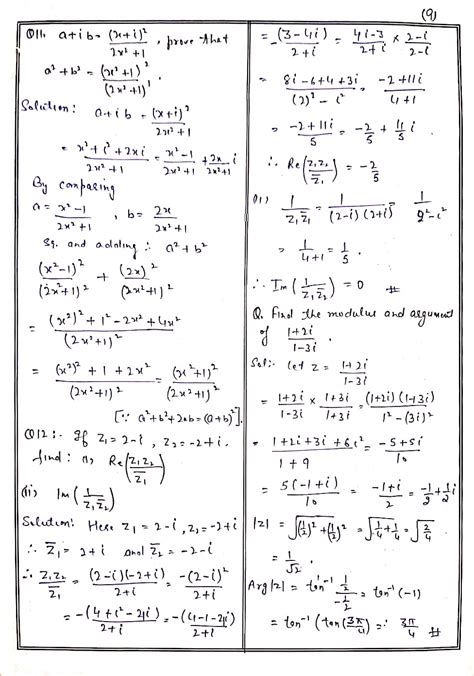 (9)
Q11. a+ib = (x+i)² / 2x²+1 , prove that
a²+b² = (x²+1)² / (2x²+1)²
Solution: a+ib = (x+i)² / 2x²+1
= x²+i²+2xi / 2x²+1 = x²-1 / 2x²+1 + 2x / 2x²+1 i
By comparing
a = x²-1 / 2x²+1 , b = 2x / 2x²+1
Sq. and adding : a²+b²
(x²-1)² / (2x²+1)² + (2x)² / (2x²+1)²
= (x²)²+1²-2x²+4x² / (2x²+1)²
= (x²)²+1+2x² / (2x²+1)² = (x²+1)² / (2x²+1)²
[∵ a²+b²+2ab = (a+b)²]
Q12:- If z₁=2-i, z₂=-2+i.
find: (i) Re(z₁z₂ / z̄₁)
(ii) Im(1 / z₁z̄₂)
Solution: Here z₁=2-i, z₂=-2+i
∴ z̄₁ = 2+i and z̄₂ = -2-i
∴ z₁z₂ / z̄₁ = (2-i)(-2+i) / 2+i = -(2-i)² / 2+i
= -(4+i²-4i) / 2+i = -(4-1-4i) / 2+i
= -(3-4i) / 2+i = 4i-3 / 2+i × 2-i / 2-i
= 8i-6+4+3i / (2)²-i² = -2+11i / 4+1
= -2+11i / 5 = -2/5 + 11/5 i
∴ Re(z₁z₂ / z̄₁) = -2/5
1 / z₁z̄₁ = 1 / (2-i)(2+i) = 1 / 2²-i²
= 1 / 4+1 = 1/5 .
∴ Im(1 / z₁z̄₂) = 0 #
Q. Find the modulus and argument
of 1+2i / 1-3i .
Sol:- Let z = 1+2i / 1-3i
= 1+2i / 1-3i × 1+3i / 1+3i = (1+2i)(1+3i) / 1²-(3i)²
= 1+2i+3i+6i² / 1+9 = -5+5i / 10
= 5(-1+i) / 10 = -1+i / 2 = -1/2 + 1/2 i
|z| = √(1/2)²+(1/2)² = √1/4+1/4 = √2/4
= 1/√2 .
Arg|z| = tan⁻¹ 1/2 / -1/2 = tan⁻¹(-1)
= tan⁻¹(tan(3π/4)) ∴ 3π/4 #